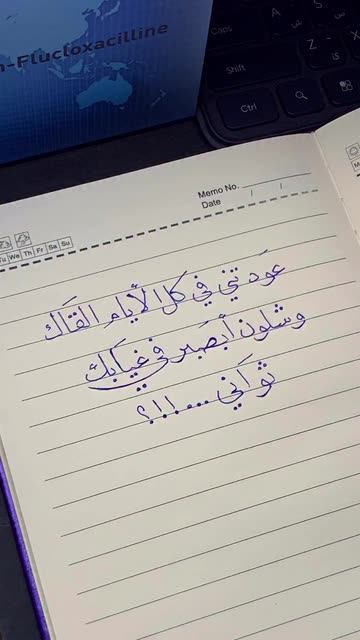 n-Flucloxacilline
Caps
Shift
Ctrl
Z
X
Memo No.
Date / /
Tu We Th Fr Sa Su
عَودتني في كل الأيام القاك
وشلون أبصَبر في غيابك
ثواني ...!!؟